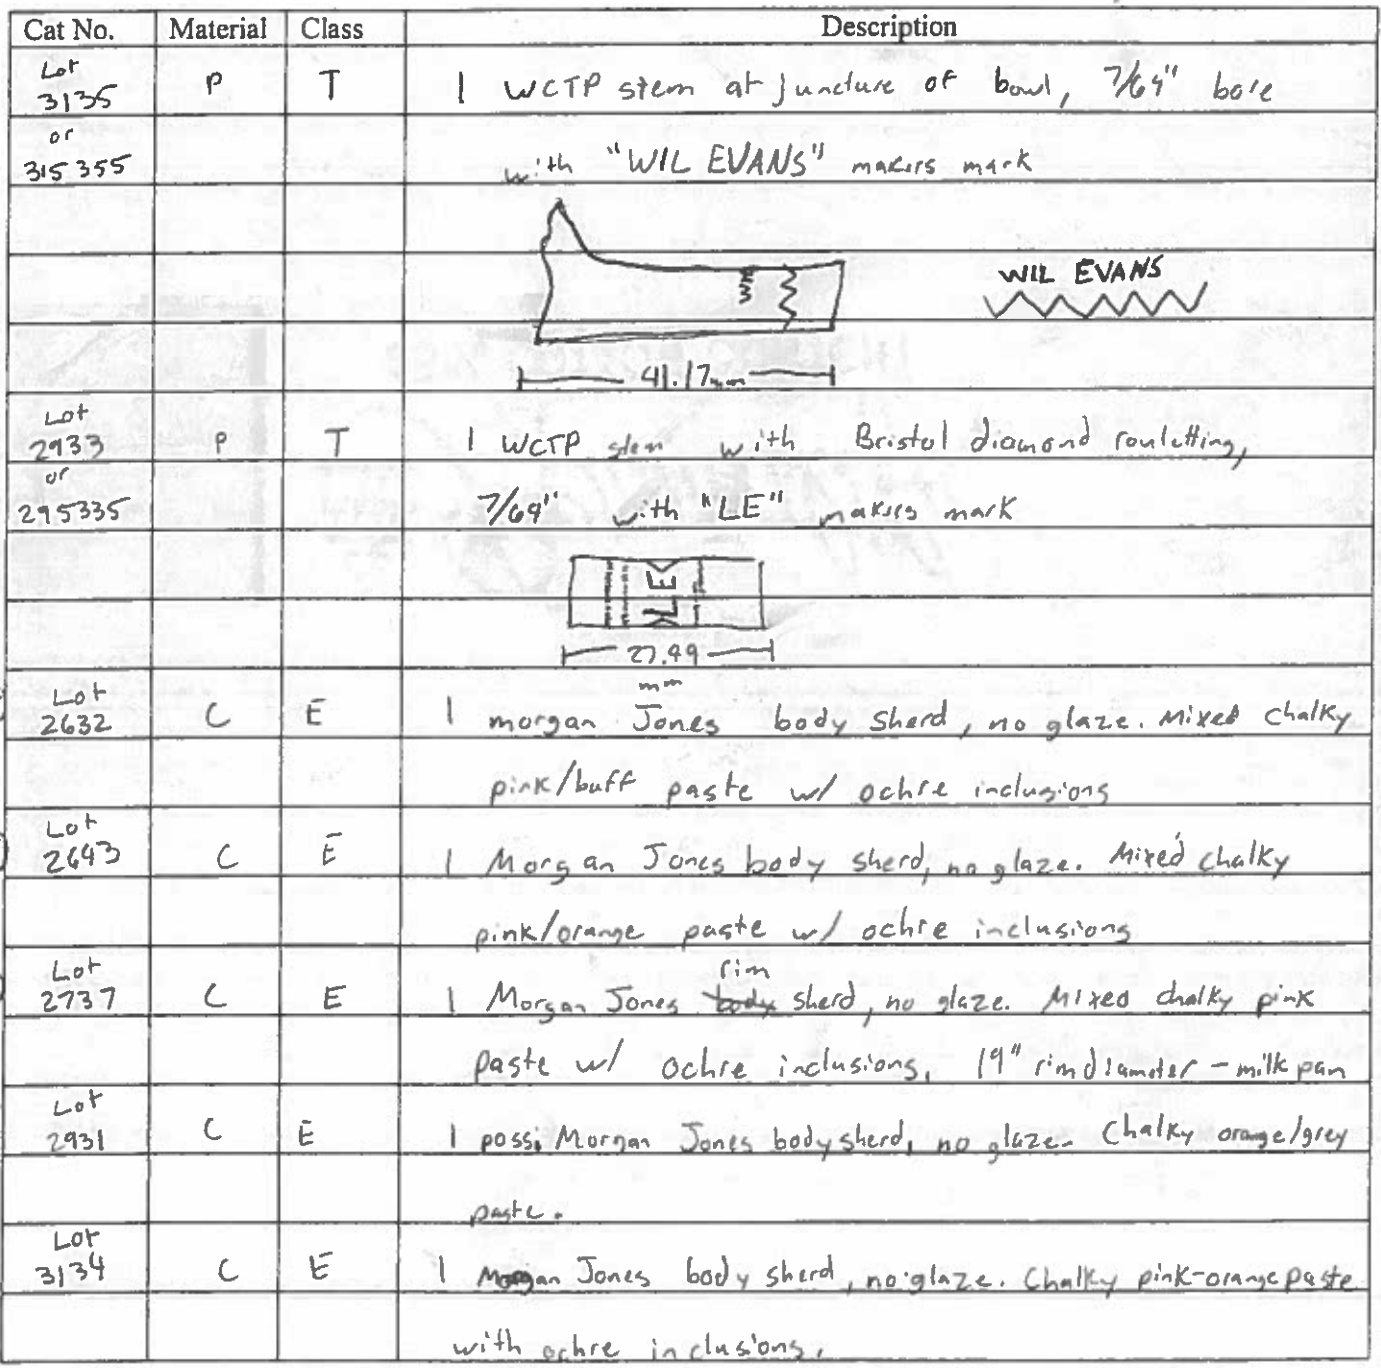 Cat No. Material Class Description
Lot
3135 P T 1 WCTP stem at juncture of bowl, 7/64" bore
or
315355 with "WIL EVANS" makers mark
WIL EVANS
41.17mm
Lot
2933 P T 1 WCTP stem with Bristol diamond rouletting,
or
295335 7/64" with "LE" makers mark
LE
27.99
mm
Lot
2632 C E 1 morgan Jones body sherd, no glaze. Mixed chalky
pink/buff paste w/ ochre inclusions
Lot
2643 C E 1 Morgan Jones body sherd, no glaze. Mixed chalky
pink/orange paste w/ ochre inclusions
Lot rim
2737 C E 1 Morgan Jones body sherd, no glaze. Mixed chalky pink
paste w/ ochre inclusions, 19" rim diameter - milk pan
Lot
2931 C E 1 possi. Morgan Jones body sherd, no glaze. Chalky orange/grey
paste.
Lot
3134 C E 1 Morgan Jones body sherd, no glaze. Chalky pink-orange paste
with ochre inclusions.